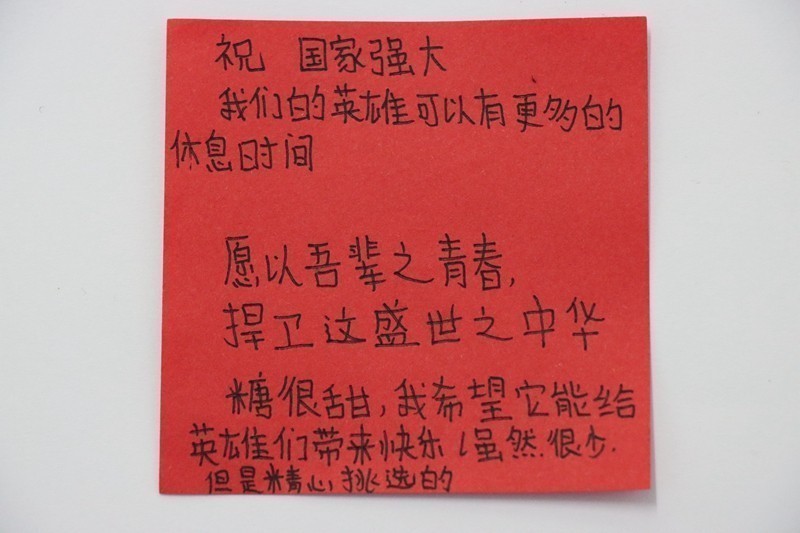 祝 国家强大
我们的英雄可以有更多的
休息时间
愿以吾辈之青春,
捍卫这盛世之中华
糖很甜,我希望它能给
英雄们带来快乐(虽然.很少.
但是精心挑选的